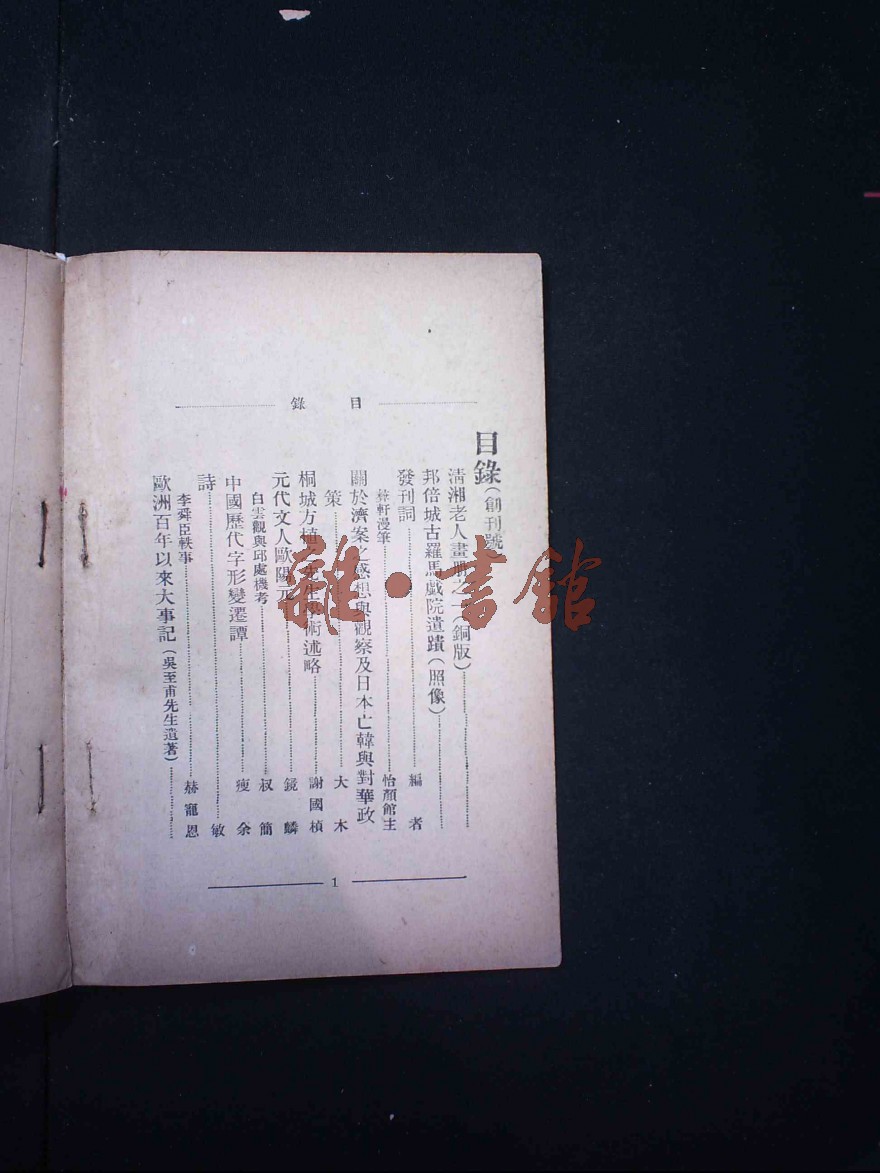 目錄
目錄(創刊號)
清湘老人畫册之一(銅版)
邦倍城古羅馬戲院遺蹟(照像)
發刊詞 編者
軒漫筆 怡顏館主
關於濟案之感想與觀察及日本亡韓與對華政
策 大木
桐城方植先生學術述略 謝國楨
元代文人歐陽元 鏡麟
白雲觀與邱處機考 叔簡
中國歷代字形變遷譚 瘦余
詩 敏
李舜臣軼事 赫寵恩
歐洲百年以來大事記(吳至甫先生遺著)
1
雜·書館